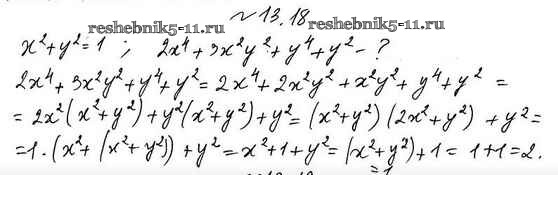 reshebnik5-11.ru
№13.18
reshebnik5-11.ru
x²+y²=1 ; 2x⁴+3x²y²+y⁴+y²-?
2x⁴+3x²y²+y⁴+y²=2x⁴+2x²y²+x²y²+y⁴+y² =
=2x²(x²+y²)+y²(x²+y²)+y²=(x²+y²)(2x²+y²) +y²=
=1·(x²+(x²+y²))+y²=x²+1+y²=(x²+y²)+1=1+1=2.
=1